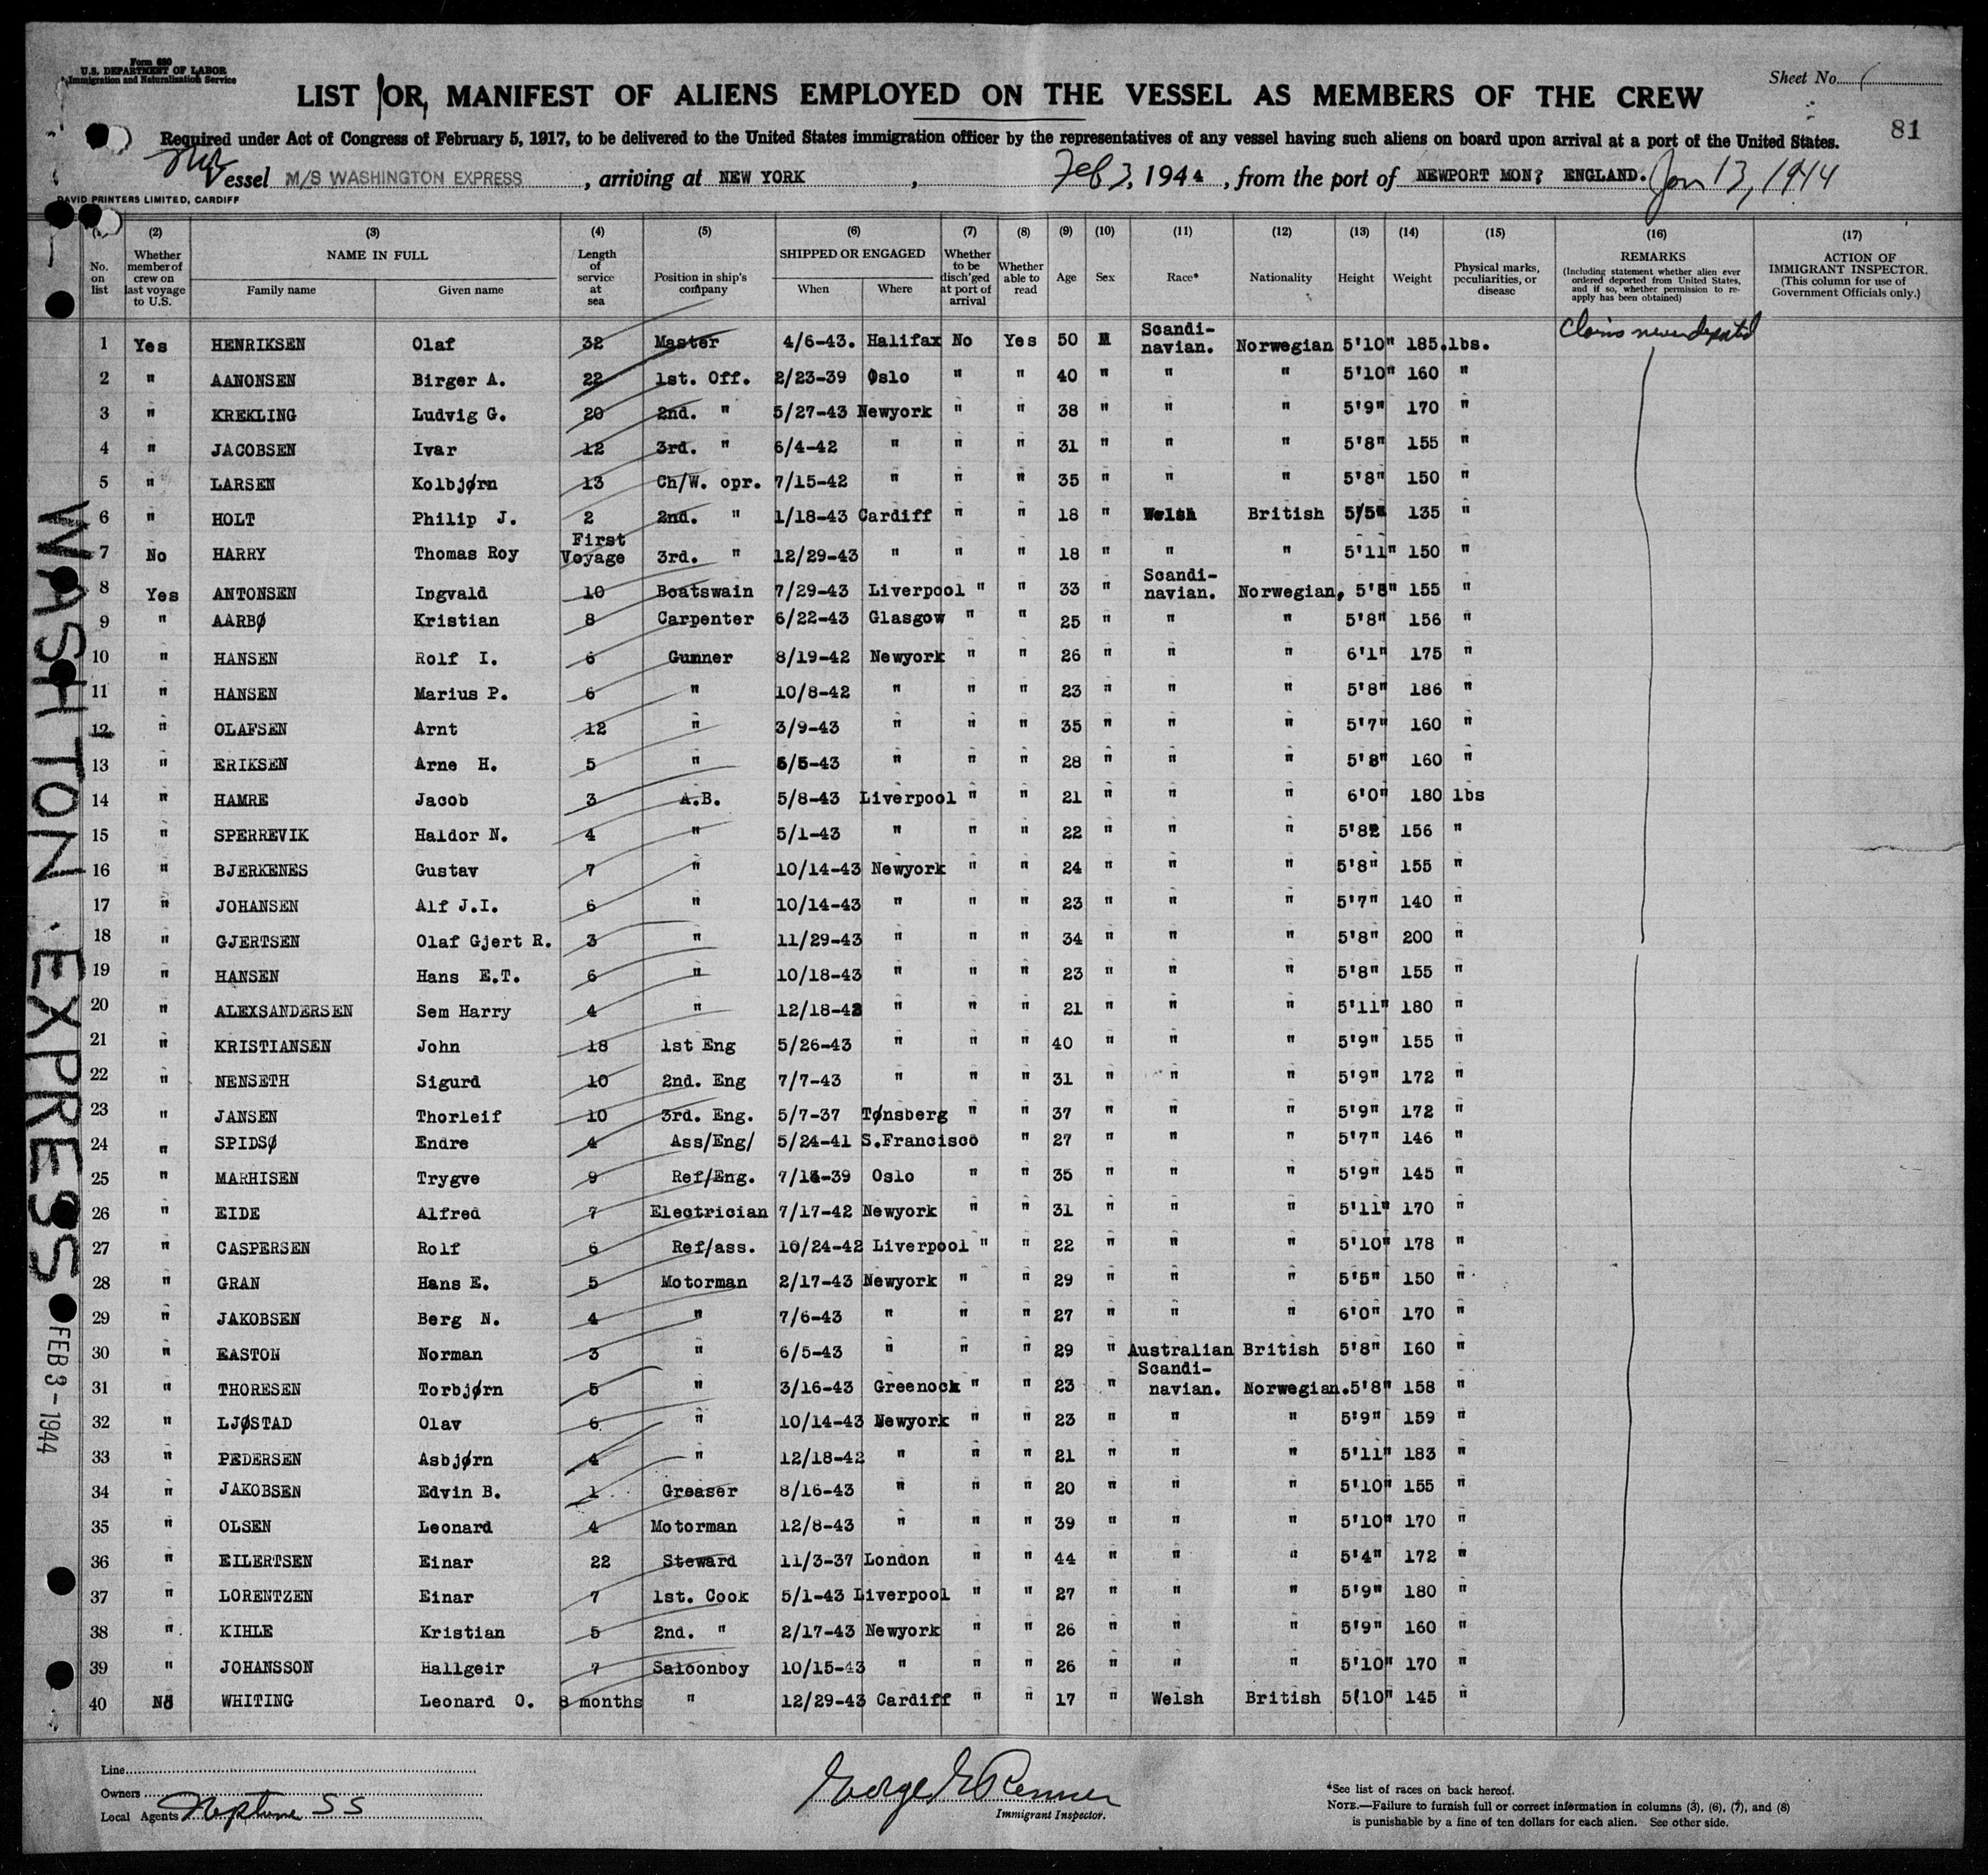 Form 680
U.S. DEPARTMENT OF LABOR
Immigration and Naturalization Service
Sheet No. 1
LIST OR MANIFEST OF ALIENS EMPLOYED ON THE VESSEL AS MEMBERS OF THE CREW
81
Required under Act of Congress of February 5, 1917, to be delivered to the United States immigration officer by the representatives of any vessel having such aliens on board upon arrival at a port of the United States.
Vessel M/S WASHINGTON EXPRESS, arriving at NEW YORK, Feb 3, 1944, from the port of NEWPORT MON; ENGLAND. Jan 13, 1944
DAVID PRINTERS LIMITED, CARDIFF
(2) (3) (4) (5) (6) (7) (8) (9) (10) (11) (12) (13) (14) (15) (16) (17)
No. on list
Whether member of crew on last voyage to U.S.
NAME IN FULL
Family name Given name
Length of service at sea
Position in ship's company
SHIPPED OR ENGAGED
When Where
Whether to be disch'ged at port of arrival
Whether able to read
Age Sex Race* Nationality Height Weight
Physical marks, peculiarities, or disease
REMARKS
(Including statement whether alien ever ordered deported from United States, and if so, whether permission to re-apply has been obtained)
ACTION OF IMMIGRANT INSPECTOR.
(This column for use of Government Officials only.)
1 Yes HENRIKSEN Olaf 32 Master 4/6-43. Halifax No Yes 50 M Scandi-navian. Norwegian 5'10" 185.lbs. Claims never deported
2 " AANONSEN Birger A. 22 1st. Off. 2/23-39 Oslo " " 40 " " " 5'10" 160 "
3 " KREKLING Ludvig G. 20 2nd. " 5/27-43 Newyork " " 38 " " " 5'9" 170 "
4 " JACOBSEN Ivar 12 3rd. " 6/4-42 " " " 31 " " " 5'8" 155 "
5 " LARSEN Kolbjørn 13 Ch/W. opr. 7/15-42 " " " 35 " " " 5'8" 150 "
6 " HOLT Philip J. 2 2nd. " 1/18-43 Cardiff " " 18 " Welsh British 5/5" 135 "
7 No HARRY Thomas Roy First Voyage 3rd. " 12/29-43 " " " 18 " " " 5'11" 150 "
8 Yes ANTONSEN Ingvald 10 Boatswain 7/29-43 Liverpool " " 33 " Scandi-navian. Norwegian, 5'8" 155 "
9 " AARBØ Kristian 8 Carpenter 6/22-43 Glasgow " " 25 " " " 5'8" 156 "
10 " HANSEN Rolf I. 6 Gunner 8/19-42 Newyork " " 26 " " " 6'1" 175 "
11 " HANSEN Marius P. 6 " 10/8-42 " " " 23 " " " 5'8" 186 "
12 " OLAFSEN Arnt 12 " 3/9-43 " " " 35 " " " 5'7" 160 "
13 " ERIKSEN Arne H. 5 " 5/5-43 " " " 28 " " " 5'8" 160 "
14 " HAMRE Jacob 3 A.B. 5/8-43 Liverpool " " 21 " " " 6'0" 180 lbs
15 " SPERREVIK Haldor N. 4 " 5/1-43 " " " 22 " " " 5'82 156 "
16 " BJERKENES Gustav 7 " 10/14-43 Newyork " " 24 " " " 5'8" 155 "
17 " JOHANSEN Alf J.I. 6 " 10/14-43 " " " 23 " " " 5'7" 140 "
18 " GJERTSEN Olaf Gjert R. 3 " 11/29-43 " " " 34 " " " 5'8" 200 "
19 " HANSEN Hans E.T. 6 " 10/18-43 " " " 23 " " " 5'8" 155 "
20 " ALEXSANDERSEN Sem Harry 4 " 12/18-42 " " " 21 " " " 5'11" 180 "
21 " KRISTIANSEN John 18 1st Eng 5/26-43 " " " 40 " " " 5'9" 155 "
22 " NENSETH Sigurd 10 2nd. Eng 7/7-43 " " " 31 " " " 5'9" 172 "
23 " JANSEN Thorleif 10 3rd. Eng. 5/7-37 Tønsberg " " 37 " " " 5'9" 172 "
24 " SPIDSØ Endre 4 Ass/Eng/ 5/24-41 S.Francisco " 27 " " " 5'7" 146 "
25 " MARHISEN Trygve 9 Ref/Eng. Oslo " " 35 " " " 5'9" 145 "
26 " EIDE Alfred 7 Electrician 7/17-42 Newyork " " 31 " " " 5'11" 170 "
27 " CASPERSEN Rolf 6 Ref/ass. 10/24-42 Liverpool " " 22 " " " 5'10" 178 "
28 " GRAN Hans E. 5 Motorman 2/17-43 Newyork " " 29 " " " 5'5" 150 "
29 " JAKOBSEN Berg N. 4 " 7/6-43 " " " 27 " " " 6'0" 170 "
30 " EASTON Norman 3 " 6/5-43 " " " 29 " Australian British 5'8" I60 "
31 " THORESEN Torbjørn 5 " 3/16-43 Greenock " " 23 " Scandi-navian. Norwegian. 5'8" 158 "
32 " LJØSTAD Olav 6 " 10/14-43 Newyork " " 23 " " " 5'9" 159 "
33 " PEDERSEN Asbjørn 4 " 12/18-42 " " " 21 " " " 5'11" 183 "
34 " JAKOBSEN Edvin B. 1 Greaser 8/16-43 " " " 20 " " " 5'10" 155 "
35 " OLSEN Leonard 4 Motorman 12/8-43 " " " 39 " " " 5'10" 170 "
36 " EILERTSEN Einar 22 Steward 11/3-37 London " " 44 " " " 5'4" 172 "
37 " LORENTZEN Einar 7 1st. Cook 5/1-43 Liverpool " " 27 " " " 5'9" 180 "
38 " KIHLE Kristian 5 2nd. " 2/17-43 Newyork " " 26 " " " 5'9" 160 "
39 " JOHANSSON Hallgeir 7 Saloonboy 10/15-43 " " " 26 " " " 5'10" 170 "
40 No WHITING Leonard O. 8 months " 12/29-43 Cardiff " " 17 " Welsh British 5(10" 145 "
WASHTON EXPRESS
FEB 3-1944
Line
Owners
Local Agents Neptune S S
George E Renner
Immigrant Inspector.
*See list of races on back hereof.
NOTE.—Failure to furnish full or correct information in columns (3), (6), (7), and (8)
is punishable by a fine of ten dollars for each alien. See other side.